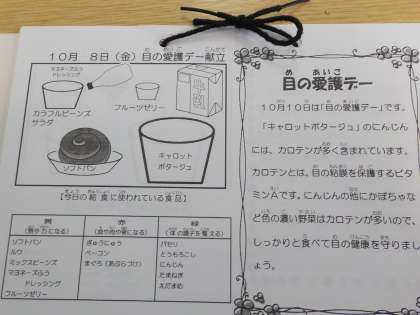 10月 8日(金)目の愛護デー献立
め あいご こんだて
マヨネーズふう
ドレッシング
カラフルビーンズ
サラダ
フルーツゼリー
牛乳
ソフトパン
キャロット
ポタージュ
【今日の給食に使われている食品】
黄
(熱や力になる)
ソフトパン
ルウ
ミックスビーンズ
マヨネーズふう
ドレッシング
フルーツゼリー
赤
(血や肉や骨になる)
ぎゅうにゅう
ベーコン
まぐろ(あぶらづけ)
緑
(体の調子を整える)
パセリ
とうもろこし
にんじん
たまねぎ
えだまめ
め あいご
目の愛護デー
10月10日は「目の愛護デー」です。
「キャロットポタージュ」のにんじん
には、カロテンが多く含まれています。
カロテンとは、目の粘膜を保護するビタ
ミンAです。にんじんの他にかぼちゃな
ど色の濃い野菜はカロテンが多いので、
しっかりと食べて目の健康を守りまし
ょう。